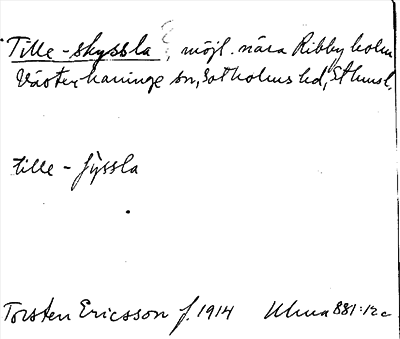 Tille-skyssla?, möjl. nära Ribby holm
Västerhaninge sn, Sotholms hd, Sthms l.
tille - ſyssla
Torsten Ericsson f. 1914 Uhma 881:12c